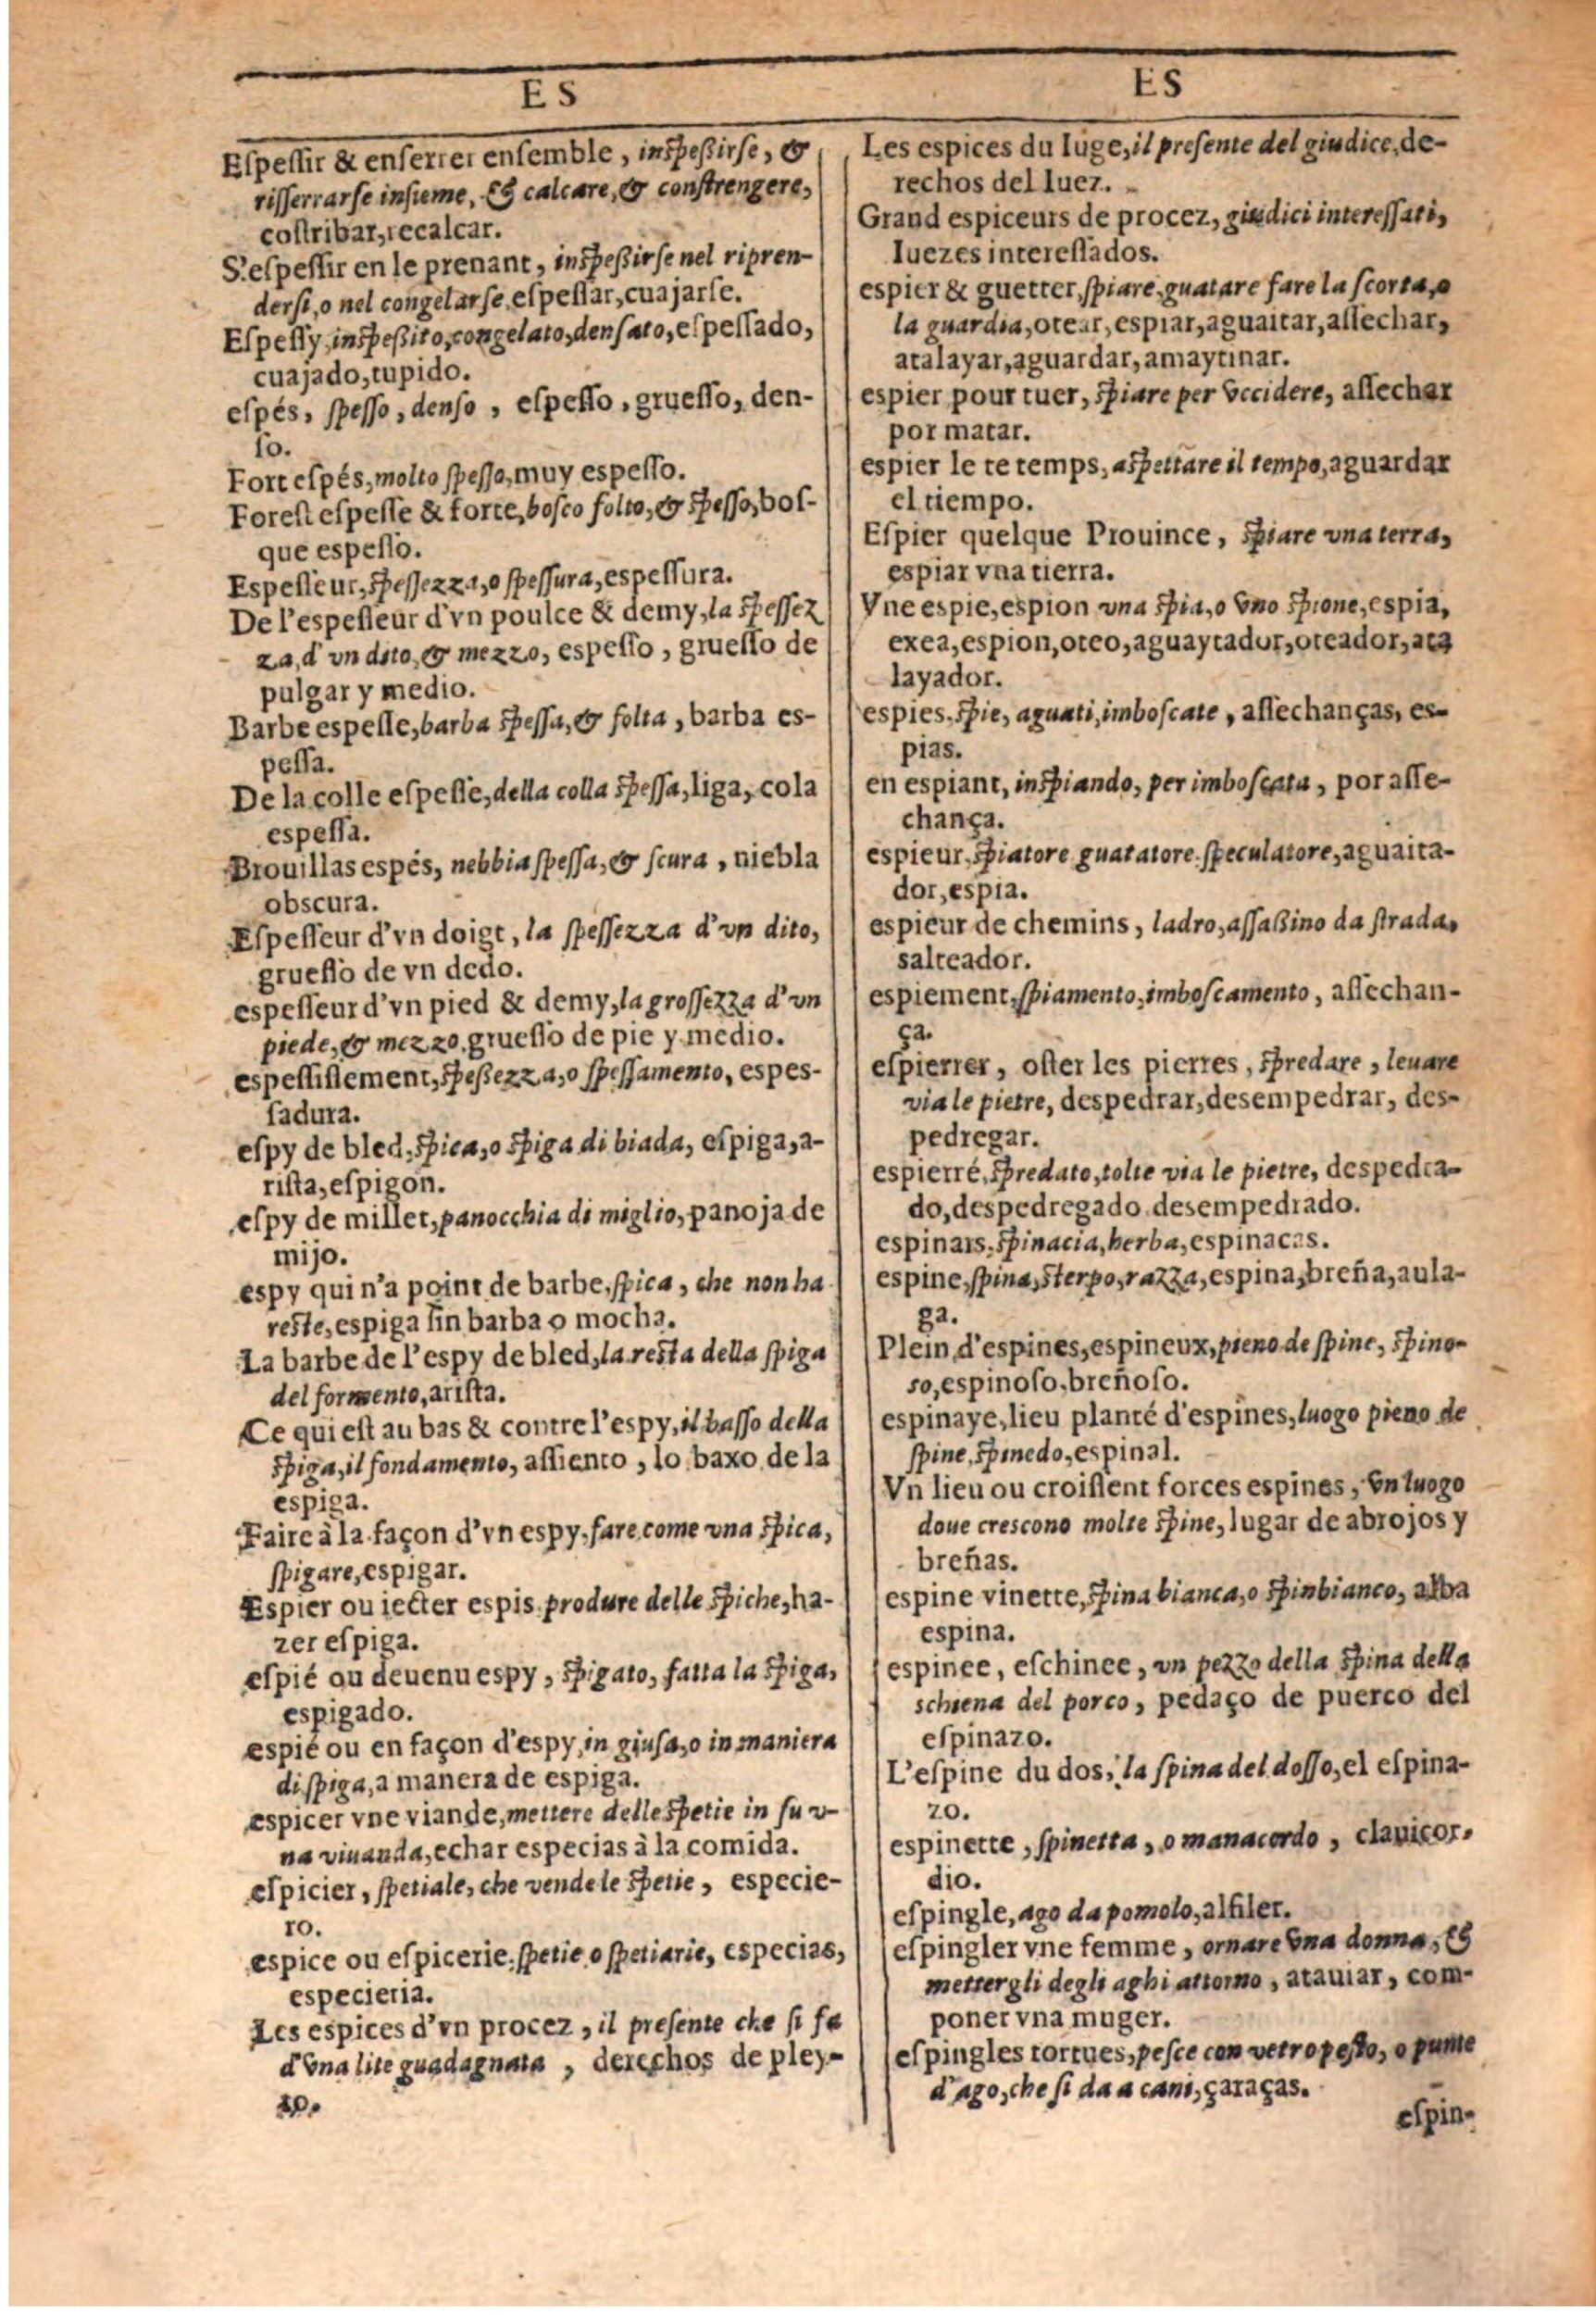 ES
Eſpeſſir & enſerrer enſemble, inſpeßirſe, &
riſſerrarſe inſieme, & calcare, & conſtrengere,
coſtribar, recalcar.
S'eſpeſſir en le prenant, inſpeßirſe nel ripren-
derſi, o nel congelarſe, eſpeſſar, cuajarſe.
Eſpeſſy, inſpeßito, congelato, denſato, eſpeſſado,
cuajado, tupido.
eſpés, ſpeſſo, denſo, eſpeſſo, grueſſo, den-
ſo.
Fort eſpés, molto ſpeſſo, muy eſpeſſo.
Foreſt eſpeſſe & forte, boſco folto, & ſpeſſo, boſ-
que eſpeſſo.
Eſpeſſeur, ſpeſſezza, o ſpeſſura, eſpeſſura.
De l'eſpeſſeur d'vn poulce & demy, la ſpeſſez
za, d'vn dito, & mezzo, eſpeſſo, grueſſo de
pulgar y medio.
Barbe eſpeſſe, barba ſpeſſa, & folta, barba es-
peſſa.
De la colle eſpeſſe, della colla ſpeſſa, liga, cola
eſpeſſa.
Brouillas espés, nebbia ſpeſſa, & ſcura, niebla
obscura.
Eſpeſſeur d'vn doigt, la ſpeſſezza d'vn dito,
grueſſo de vn dedo.
espeſſeur d'vn pied & demy, la groſſezza d'vn
piede, & mezzo, grueſſo de pie y medio.
espeſſiſſement, ſpeßezza, o ſpeſſamento, espes-
ſadura.
eſpy de bled, ſpica, o ſpiga di biada, eſpiga, a-
riſta, eſpigon.
eſpy de millet, panocchia di miglio, panoja de
mijo.
espy qui n'a point de barbe, ſpica, che non ha
reſte, espiga ſin barba o mocha.
La barbe de l'espy de bled, la reſta della ſpiga
del formento, ariſta.
Ce qui eſt au bas & contre l'espy, il baſſo della
ſpiga, il fondamento, aſſiento, lo baxo de la
espiga.
Faire à la façon d'vn espy, fare come vna ſpica,
ſpigare, espigar.
Espier ou iecter espis produre delle ſpiche, ha-
zer eſpiga.
eſpié ou deuenu espy, ſpigato, fatta la ſpiga,
espigado.
espié ou en façon d'espy, in giuſa, o in maniera
di ſpiga, a manera de espiga.
espicer vne viande, mettere delle ſpetie in ſu v-
na viuanda, echar especias à la comida.
eſpicier, ſpetiale, che vende le ſpetie, especie-
ro.
espice ou eſpicerie, ſpetie o ſpetiarie, especias,
especieria.
Les espices d'vn procez, il preſente che ſi fa
d'vna lite guadagnata, derechos de pley-
to.
ES
Les espices du Iuge, il preſente del giudice, de-
rechos del Iuez.
Grand espiceurs de procez, giudici intereſſati,
Iuezes intereſſados.
espier & guetter, ſpiare, guatare fare la ſcorta, o
la guardia, otear, espiar, aguaitar, aſſechar,
atalayar, aguardar, amaytinar.
espier pour tuer, ſpiare per vccidere, aſſechar
por matar.
espier le te temps, aſpettare il tempo, aguardar
el tiempo.
Eſpier quelque Prouince, ſpiare vna terra,
espiar vna tierra.
Vne espie, espion vna ſpia, o vno ſpione, espia,
exea, espion, oteo, aguaytador, oteador, ata
layador.
espies, ſpie, aguati, imboſcate, aſſechanças, es-
pias.
en espiant, inſpiando, per imboſcata, por aſſe-
chança.
espieur, ſpiatore guatatore ſpeculatore, aguaita-
dor, espia.
espieur de chemins, ladro, aſſaßino da ſtrada,
salteador.
espiement, ſpiamento, imboſcamento, aſſechan-
ça.
eſpierrer, oſter les pierres, ſpredare, leuare
via le pietre, despedrar, desempedrar, des-
pedregar.
espierré, ſpredato, tolte via le pietre, despedra-
do, despedregado desempedrado.
espinars, ſpinacia, herba, espinacas.
espine, ſpina, ſterpo, razza, espina, breña, aula-
ga.
Plein d'espines, espineux, pieno de ſpine, ſpino-
ſo, espinoſo, breñoſo.
espinaye, lieu planté d'espines, luogo pieno de
ſpine, ſpinedo, espinal.
Vn lieu ou croiſſent forces espines, vn luogo
doue creſcono molte ſpine, lugar de abrojos y
breñas.
espine vinette, ſpina bianca, o ſpinbianco, alba
espina.
espinee, eſchinee, vn pezzo della ſpina della
schiena del porco, pedaço de puerco del
eſpinazo.
L'eſpine du dos, la ſpina del doſſo, el eſpina-
zo.
espinette, ſpinetta, o manacordo, clauicor-
dio.
eſpingle, ago da pomolo, alfiler.
eſpingler vne femme, ornare vna donna, &
mettergli degli aghi attorno, atauiar, com-
poner vna muger.
eſpingles tortues, peſce con vetro peſto, o punte
d'ago, che ſi da a cani, çaraças.
eſpin-